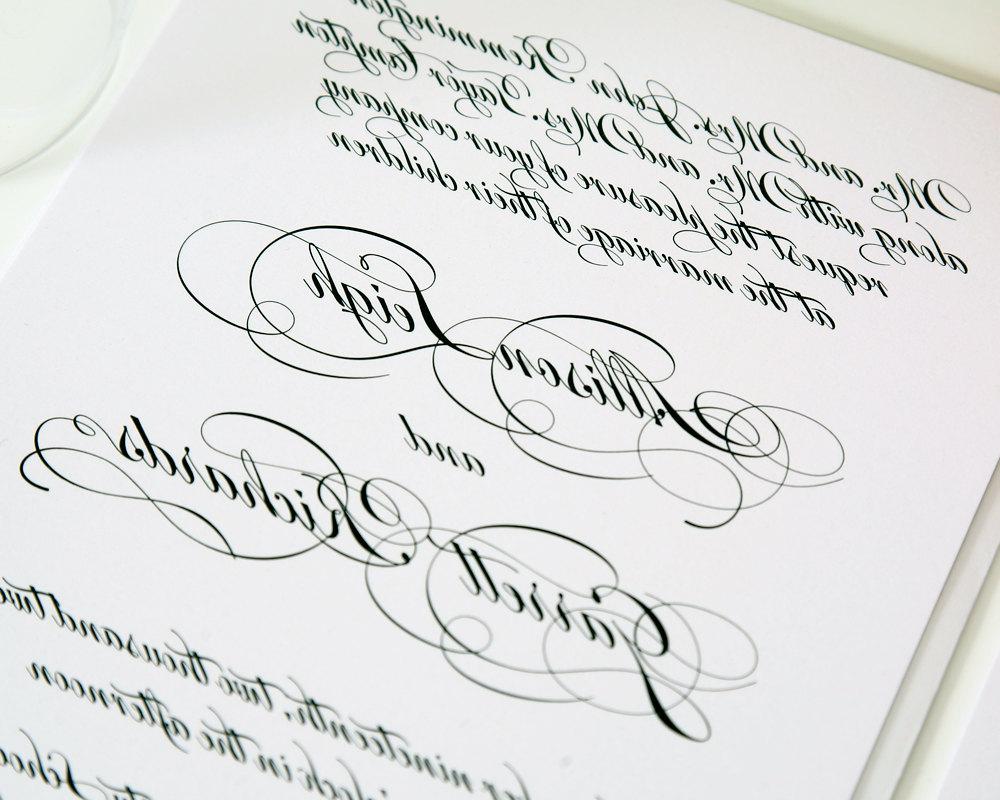 Mr. and Mrs. John Remmington
along with Mr. and Mrs. Taylor Lampton
request the pleasure of your company
at the marriage of their children
Allison Leigh
and
Garrett Richards
nineteenth, two thousand
in the afternoon